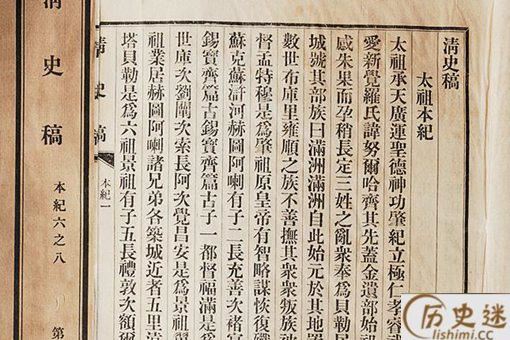 清史稿
太祖本紀
太祖承天廣運聖德神功肇紀立極仁孝睿
愛新覺羅氏諱努爾哈齊其先蓋金遺部始祖
感朱果而孕稍長定三姓之亂衆奉爲貝勒居
城號其部族曰滿洲滿洲自此始元於其地置
數世布庫里雍順之族不善撫其衆衆叛族
督孟特穆是爲肇祖原皇帝有智略謀恢復殲
蘇克蘇滸河赫圖阿喇有子二長充善次褚宴
錫寶齊篇古錫寶齊篇古子一都督福滿是
世庫次劉闡次索長阿次覺昌安是爲景祖翼
祖業居赫圖阿喇諸兄弟各築城近者五里遠
塔貝勒是爲六祖景祖有子五長禮敦次額爾
清史稿 本紀一
清史稿 本紀六之八 第
历史迷
lishimi.com